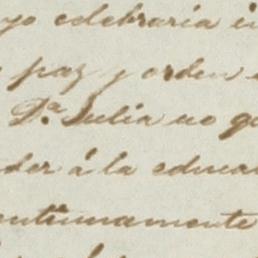 yo celebraria in
paz y orden
D.ª Julia no qu
der á la educa
continuamente